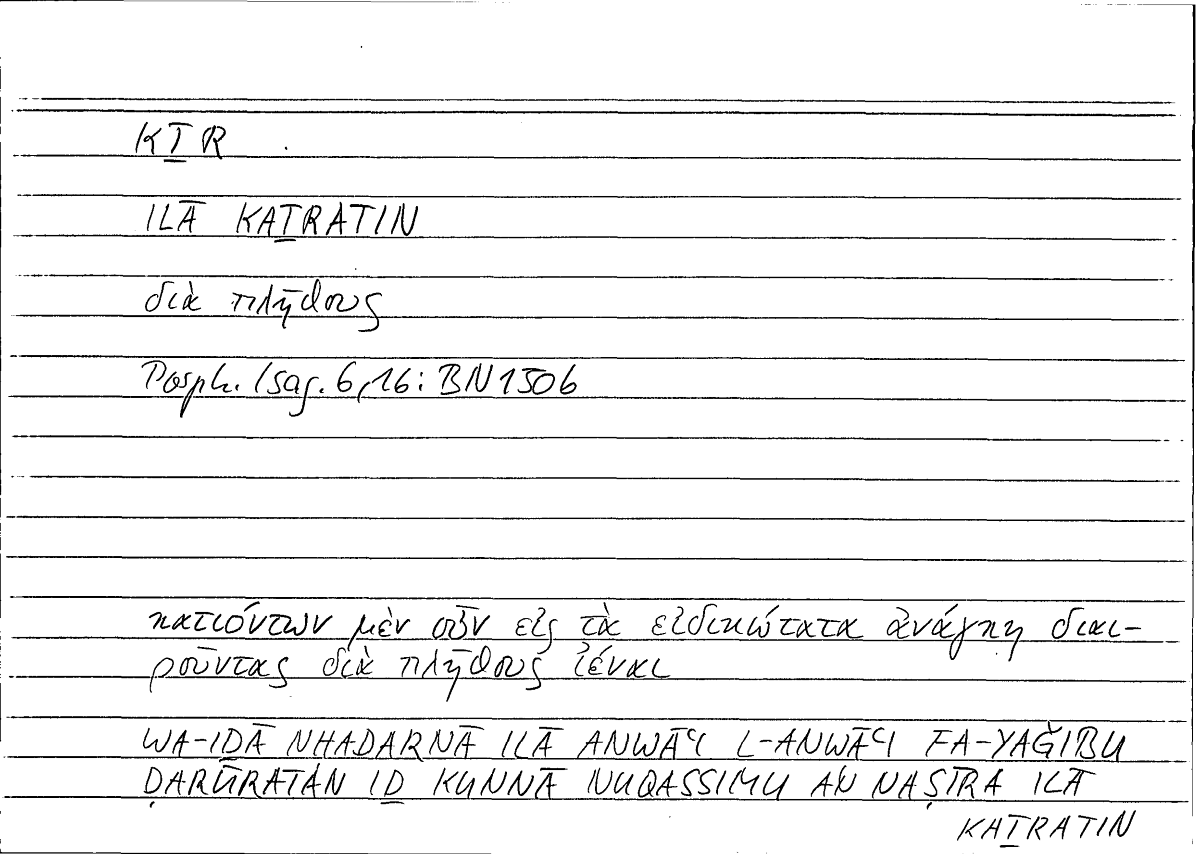 KṮR
ILĀ KAṮRATIN
διὰ πλήθους
Porph. Isag. 6,16: BN1306
κατιόντων μὲν οὖν εἰς τὰ εἰδικώτατα ἀνάγκη διαι-
ροῦντας διὰ πλήθους ἰέναι
WA-IḎĀ NHADARNĀ ILĀ ANWĀʿI L-ANWĀʿI FA-YAǦIBU
ḌARŪRATAN IḎ KUNNĀ NUQASSIMU AN NAṢĪRA ILĀ
KAṮRATIN